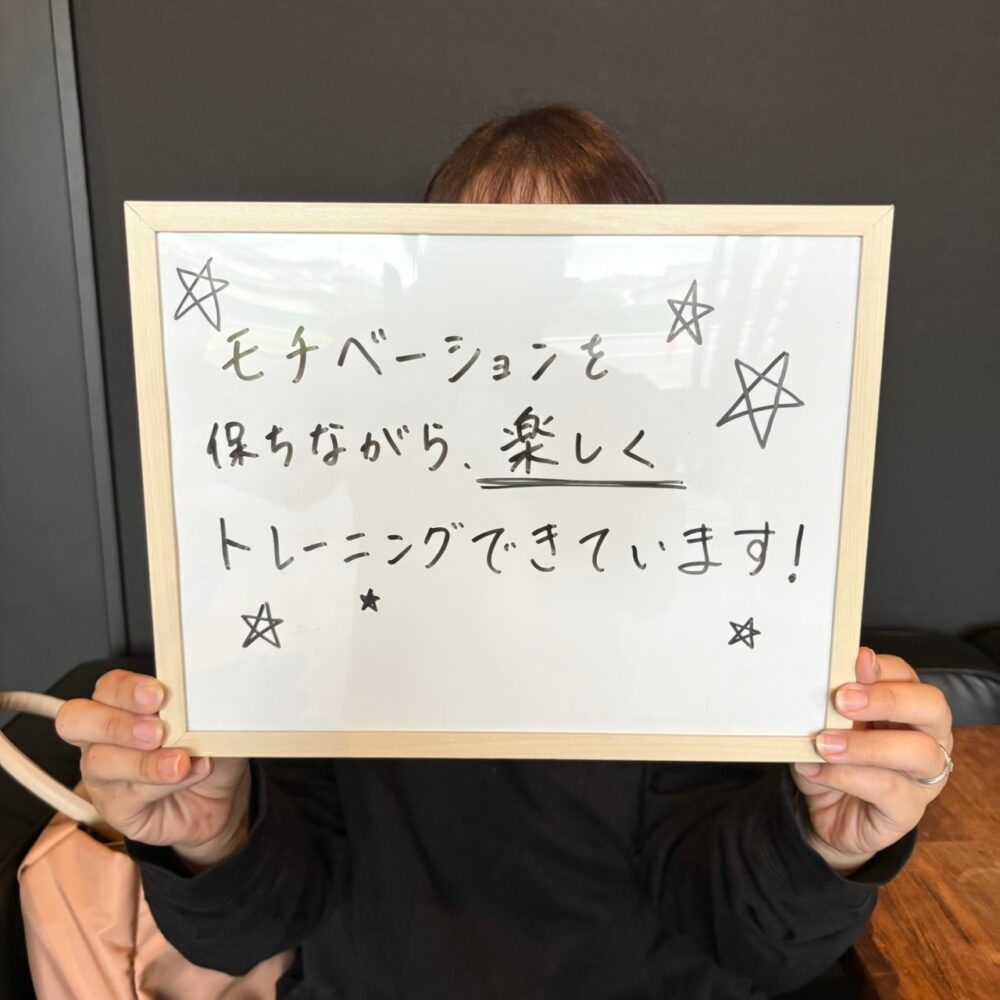 モチベーションを
保ちながら、楽しく
トレーニングできています!